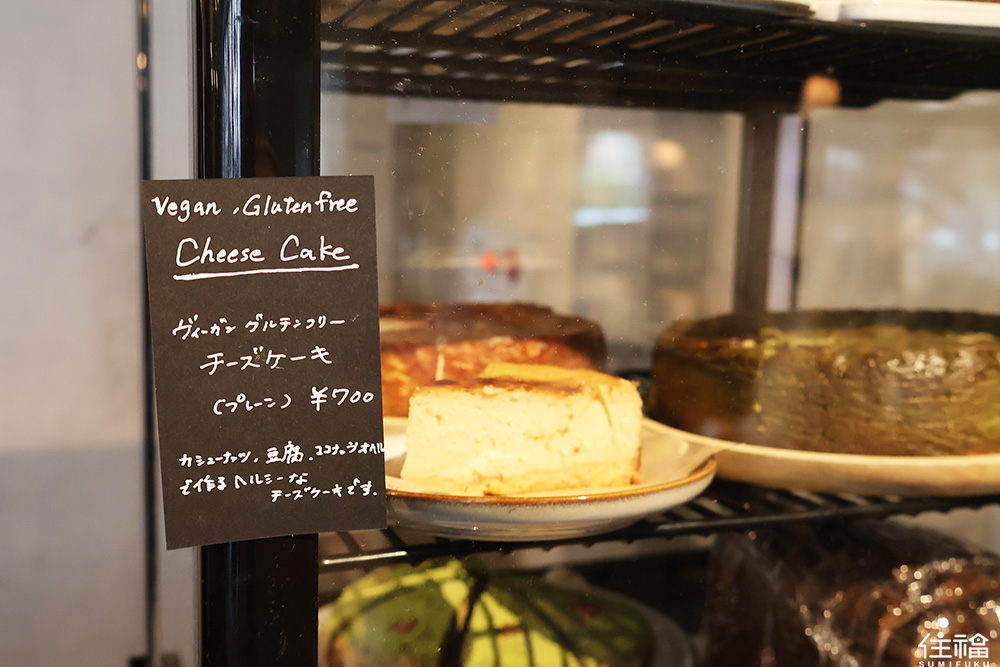 Vegan, Gluten free
Cheese Cake
ヴィーガン グルテンフリー
チーズケーキ
(プレーン) ¥700
カシューナッツ、豆腐、ココナッツオイル
で作るヘルシーな
チーズケーキです。
住福
SUMIFUKU